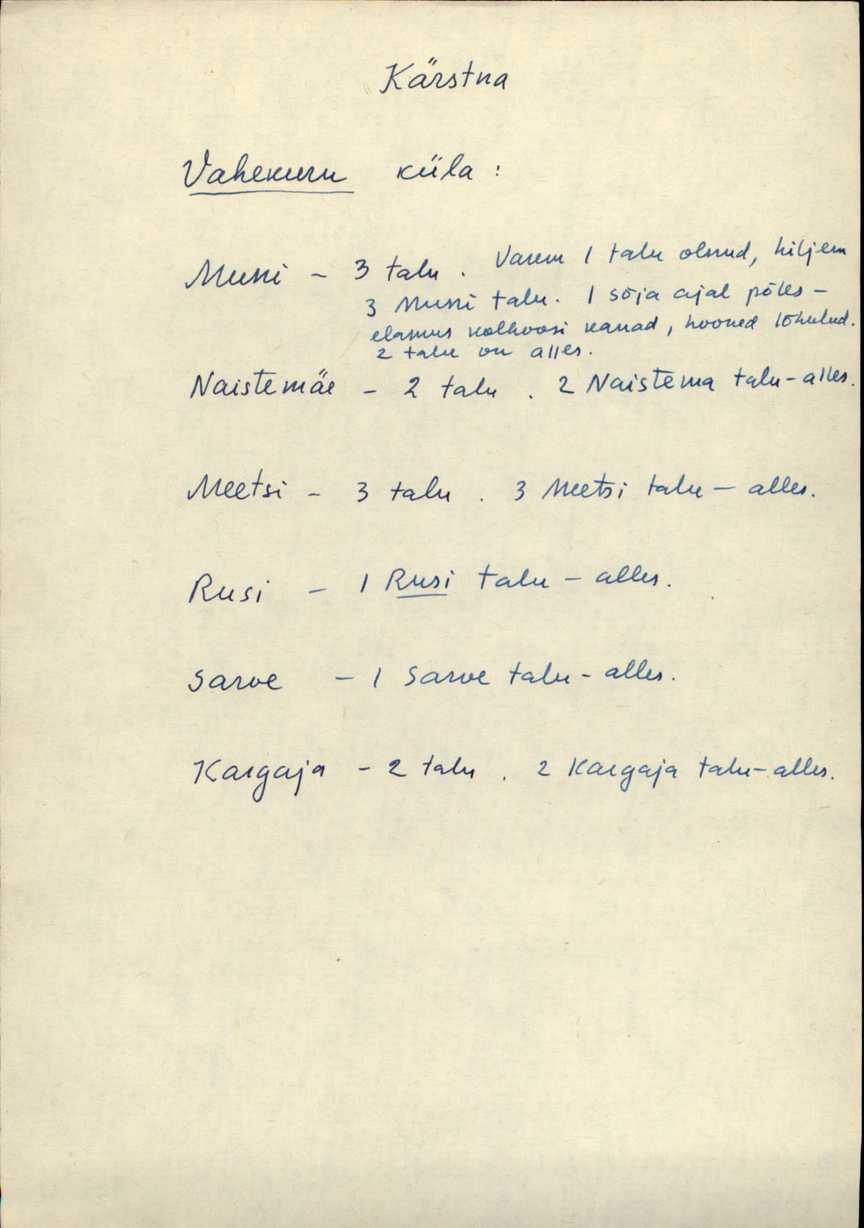 Kärstna
Vahekuru küla:
Muni - 3 talu. Varem 1 talu olnud, hiljem
3 Muni talu. 1 sõja ajal põles -
elamus kolhoosi kanad, hooned lõhutud.
2 talu on alles.
Naistemäe - 2 talu. 2 Naistema talu - alles.
Meetsi - 3 talu. 3 Meetsi talu - alles.
Rusi - 1 Rusi talu - alles.
Sarve - 1 Sarve talu - alles.
Kargaja - 2 talu. 2 Kargaja talu - alles.